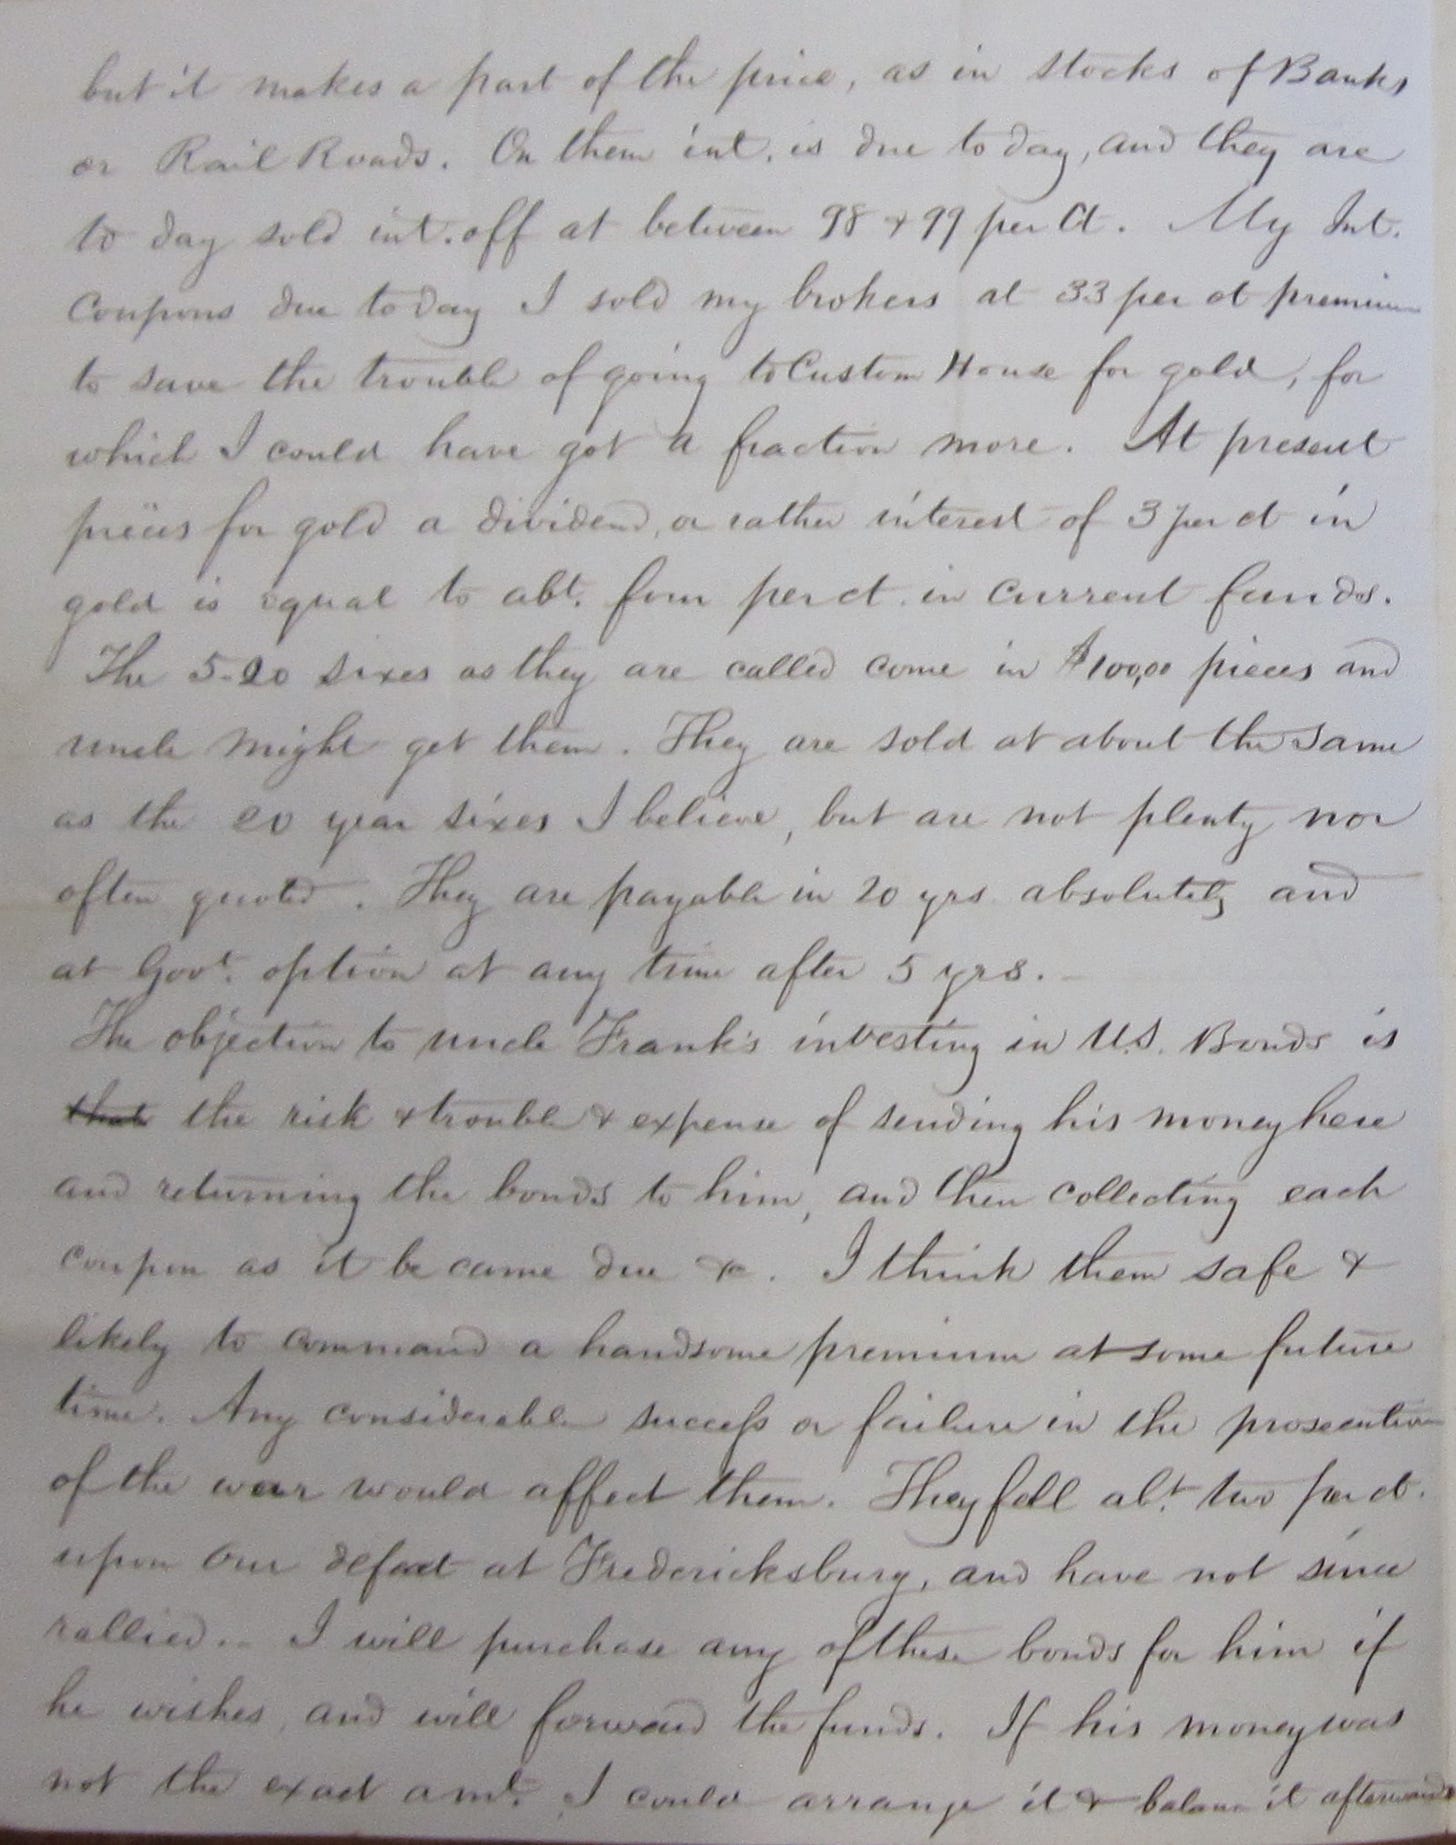 but it makes a part of the price, as in stocks of Banks
or Rail Roads. On them int. is due to day, and they are
to day sold int. off at between 98 & 99 per Ct. My Int.
Coupons due to day I sold my brokers at 33 per ct premium
to save the trouble of going to Custom House for gold, for
which I could have got a fraction more. At present
prices for gold a dividend, or rather interest of 3 per ct in
gold is equal to abt. four per ct. in current funds.
The 5-20 sixes as they are called come in $100,00 pieces and
uncle might get them. They are sold at about the same
as the 20 year sixes I believe, but are not plenty nor
often quoted. They are payable in 20 yrs. absolutely and
at Govt. option at any time after 5 yrs.
The objection to uncle Frank's investing in U.S. Bonds is
that the risk & trouble & expense of sending his money here
and returning the bonds to him, and then collecting each
coupon as it be came due &c. I think them safe &
likely to command a handsome premium at some future
time. Any considerable success or failure in the prosecution
of the war would affect them. They fell abt. two per ct.
upon our defeat at Fredericksburg, and have not since
rallied.- I will purchase any of these bonds for him if
he wishes, and will forward the funds. If his money was
not the exact amt. I could arrange it & balance it afterwards